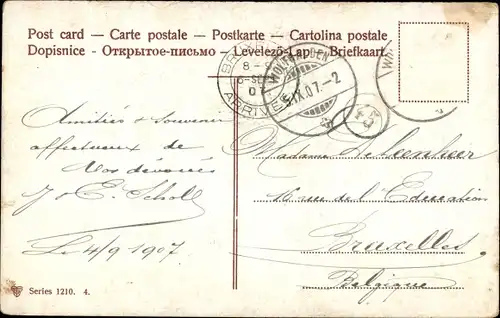 Post card — Carte postale — Postkarte — Cartolina postale
Dopisnice - Открытое-письмо - Levelező-Lap - Briefkaart.
8 - 9
07
ARRIVÉE
IX.07.-2
45
Amitiés & Souvenir
affectueux de
Vos dévoués
J & E. Scholl
Le 4/9 1907
Madame
16 rue de l'Education
Bruxelles.
Belgique
Series 1210. 4.